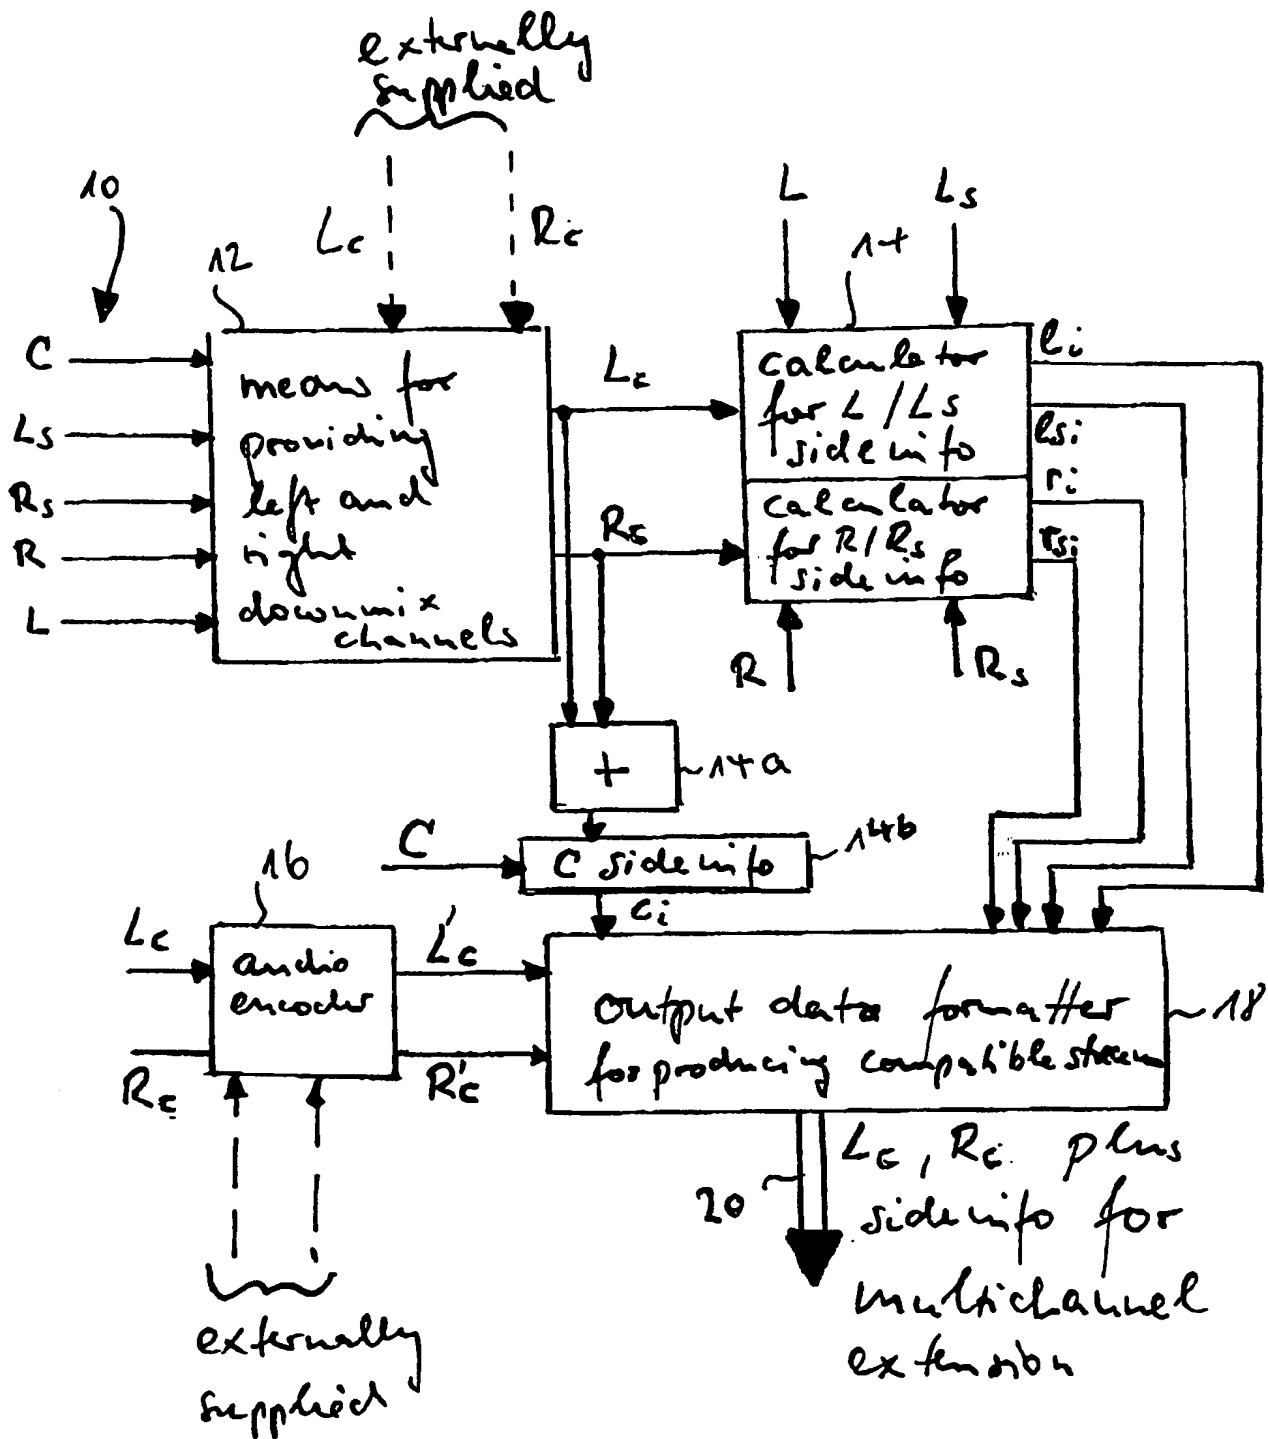 externally
supplied
10
Lc
Rc
12
L
Ls
14
C
Ls
Rs
R
L
means for
providing
left and
right
downmix
channels
Lc
Rc
calculator
for L/Ls
side info
calculator
for R/Rs
side info
li
lsi
ri
rsi
R
Rs
+
14a
C
C side info
14b
ci
16
Lc
Rc
audio
encoder
L'c
R'c
output data formatter
for producing compatible stream
18
20
Lc, Rc plus
side info for
multichannel
extension
externally
supplied